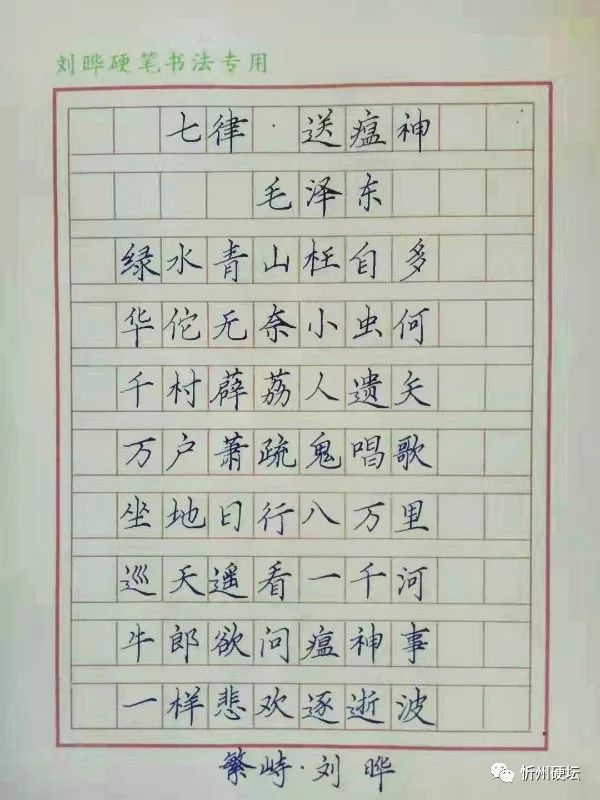 刘晔硬笔书法专用
七律·送瘟神
毛泽东
绿水青山枉自多
华佗无奈小虫何
千村薜荔人遗矢
万户萧疏鬼唱歌
坐地日行八万里
巡天遥看一千河
牛郎欲问瘟神事
一样悲欢逐逝波
繁峙·刘晔
忻州硬坛